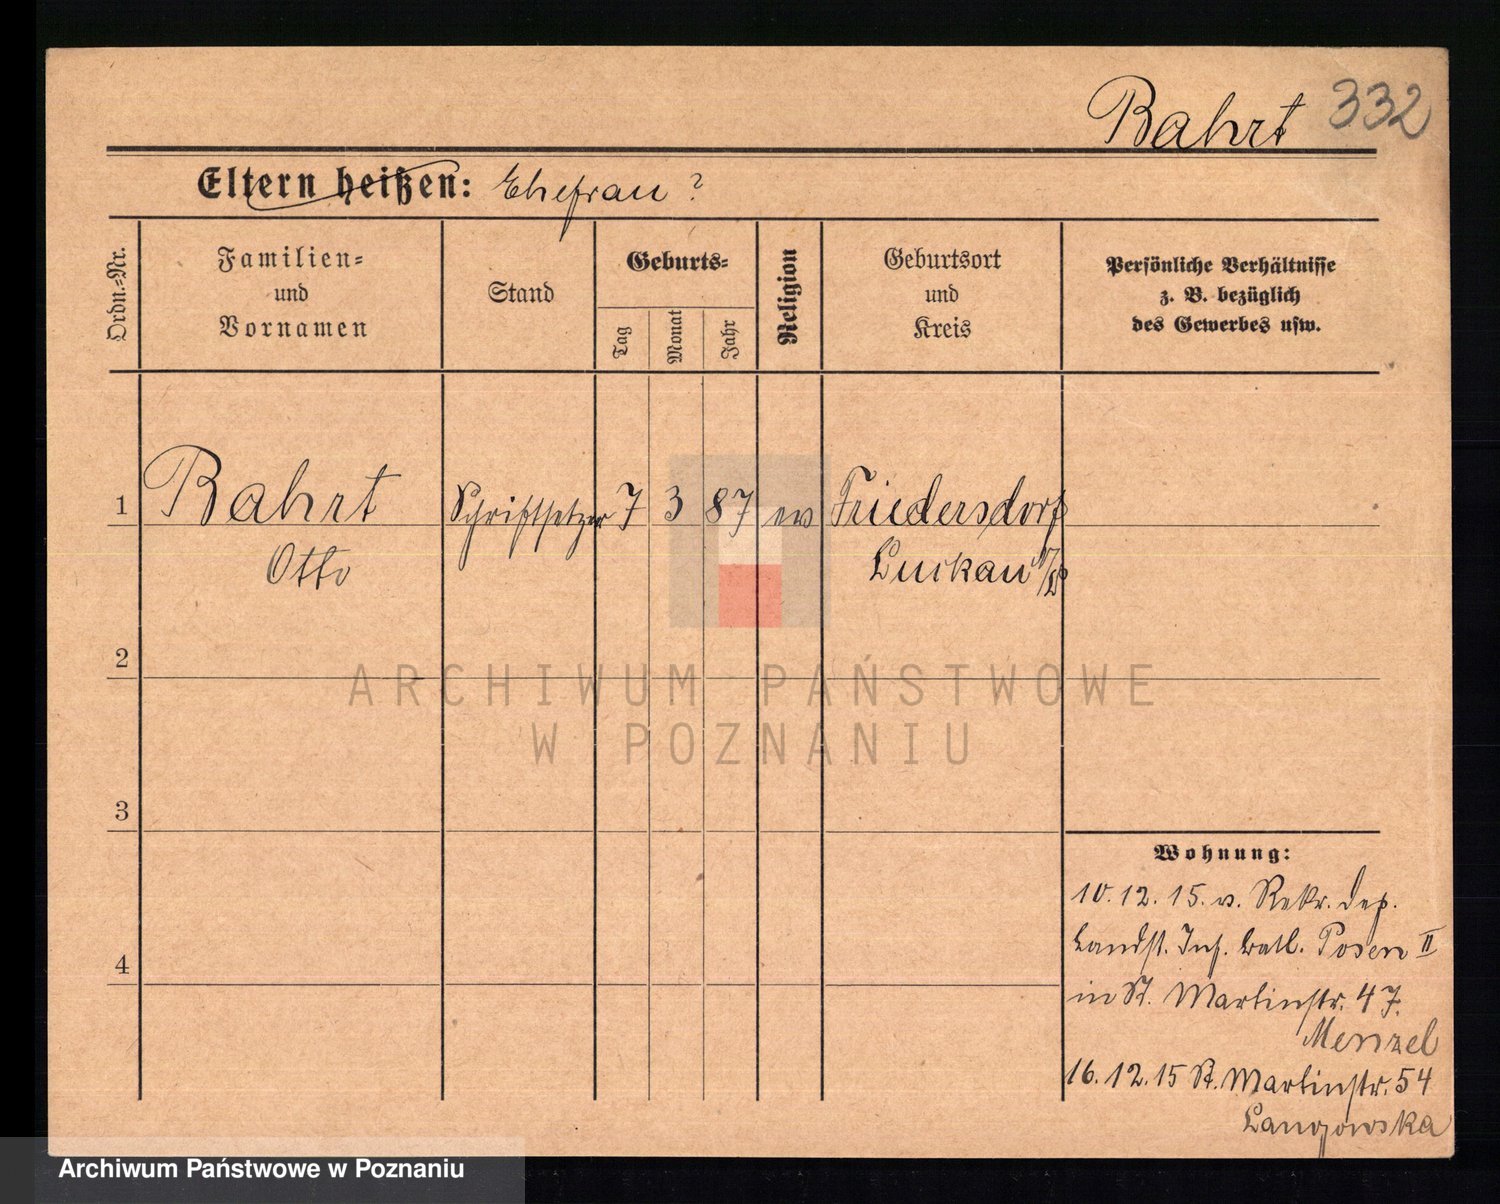 Bahrt 332
Eltern heißen: Ehefrau?
Ordn.-Nr.
Familien-
und
Vornamen
Stand
Geburts-
Tag
Monat
Jahr
Religion
Geburtsort
und
Kreis
Persönliche Verhältnisse
z. B. bezüglich
des Gewerbes usw.
1 Bahrt Schriftsetzer 7 3 87 ev Friedersdorf
Otto Luckau
2
3
4
Wohnung:
10.12.15. v. Rekr. Dep.
Landst. Inf. Batl. Posen II
in St. Martinstr. 47.
Menzel
16.12.15 St. Martinstr. 54
ARCHIWUM PAŃSTWOWE
W POZNANIU
Archiwum Państwowe w Poznaniu